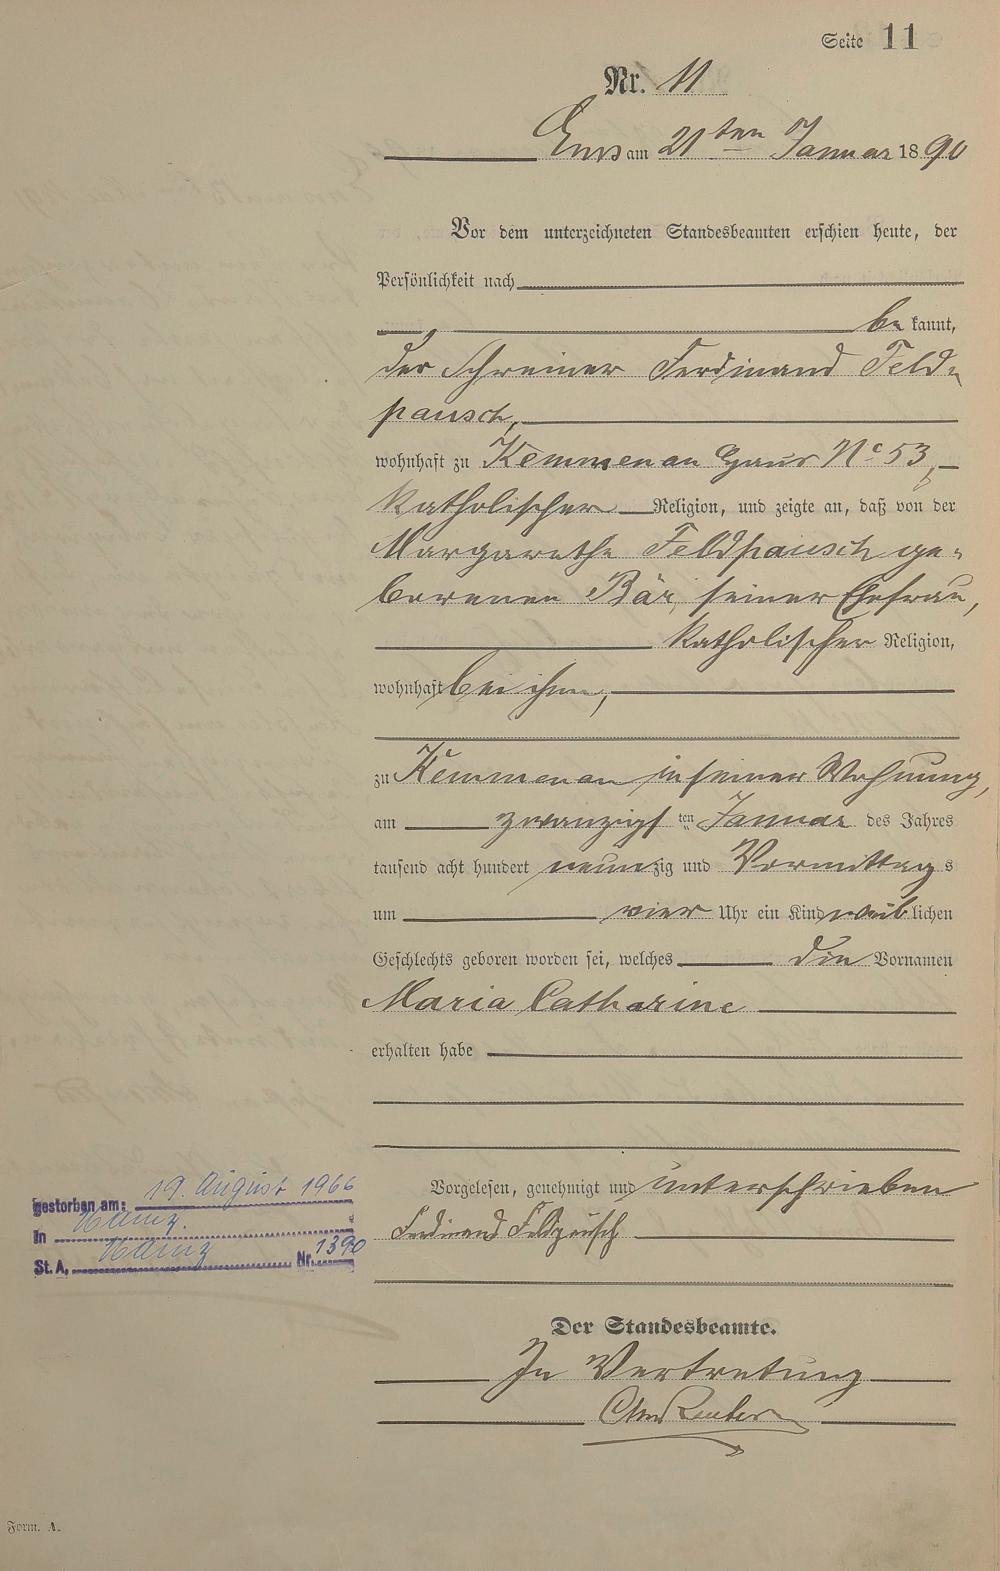 Seite 11
Nr. 11
Ems am 21ten Januar 1890
Vor dem unterzeichneten Standesbeamten erschien heute, der
Persönlichkeit nach
be kannt,
der Schreiner Ferdinand Feld-
pausch,
wohnhaft zu Kemmenau Haus No 53,
katholischer Religion, und zeigte an, daß von der
Margarethe Feldpausch ge-
borenen Bär, seiner Ehefrau,
katholischer Religion,
wohnhaft bei ihm,
zu Kemmenau in seiner Wohnung,
am zwanzigsten Januar des Jahres
tausend acht hundert neunzig und Vormittags
um vier Uhr ein Kind weiblichen
Geschlechts geboren worden sei, welches die Vornamen
Maria Catharine
erhalten habe
Vorgelesen, genehmigt und unterschrieben
Ferdinand Feldpausch
gestorben am: 19. August 1966
in Mainz.
St. A. Mainz Nr. 1390
Der Standesbeamte.
In Vertretung
Form. A.